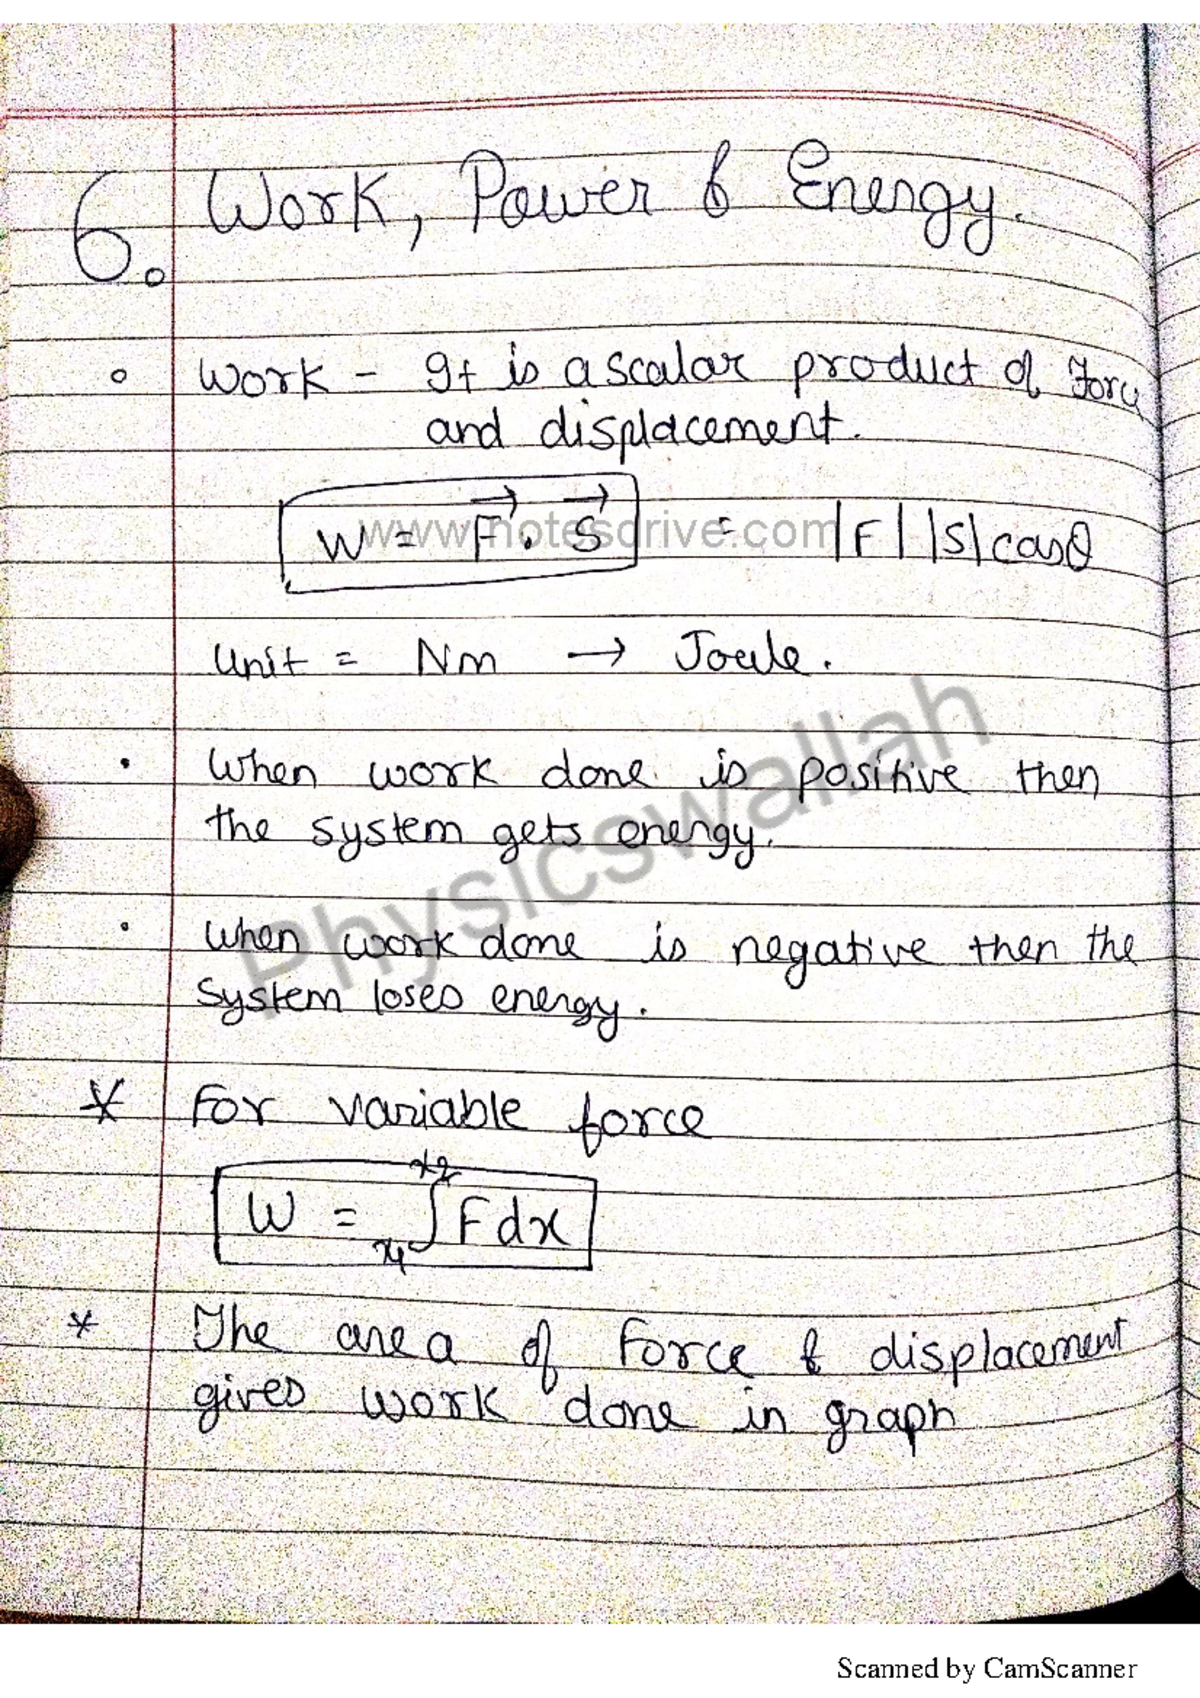 6. Work, Power & Energy.
Work - It is a scalar product of Force
and displacement.
W = F⃗ . S⃗ = |F| |S| cosθ
www.notesdrive.com
Unit = Nm → Joule.
Physicswallah
• When work done is positive then
the system gets energy.
• When work done is negative then the
system loses energy.
* For variable force
W = x₁∫x₂ F dx
* The area of Force & displacement
gives work done in graph
Scanned by CamScanner